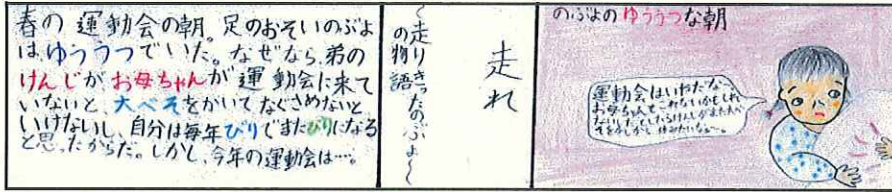 春の運動会の朝。足のおそいのぶよ
は、ゆううつでいた。なぜなら、弟の
けんじがお母ちゃんが運動会に来て
いないと、大べそをかいてなぐさめないと
いけないし、自分は毎年びりでまたびりになる
と思ったからだ。しかし、今年の運動会は…。
走れ
〜走りきったのぶよ〜
の物語
のぶよのゆううつな朝
運動会はいやだな〜
お母ちゃんてこれないかもしれ
ないし。